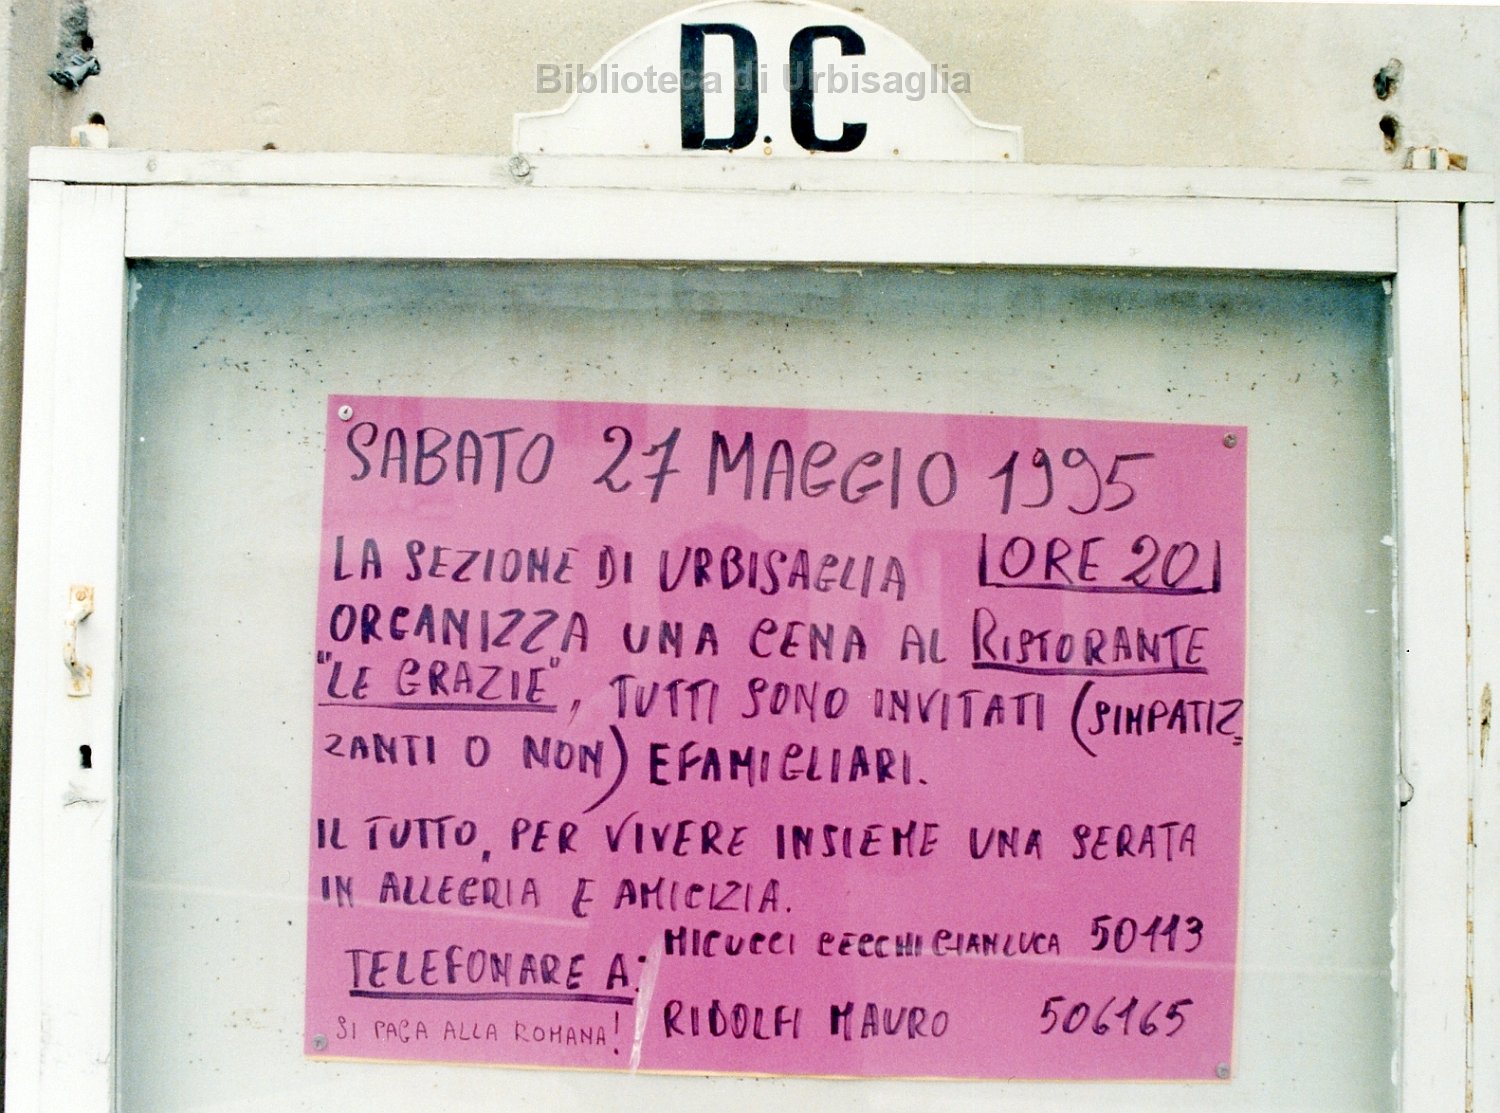 D.C
Biblioteca di Urbisaglia
SABATO 27 MAGGIO 1995
LA SEZIONE DI URBISAGLIA ORE 20
ORGANIZZA UNA CENA AL RISTORANTE
"LE GRAZIE", TUTTI SONO INVITATI (SIMPATIZ=
ZANTI O NON) E FAMIGLIARI.
IL TUTTO, PER VIVERE INSIEME UNA SERATA
IN ALLEGRIA E AMICIZIA.
TELEFONARE A: MICUCCI CECCHI GIANLUCA 50113
RIDOLFI MAURO 506165
SI PAGA ALLA ROMANA!